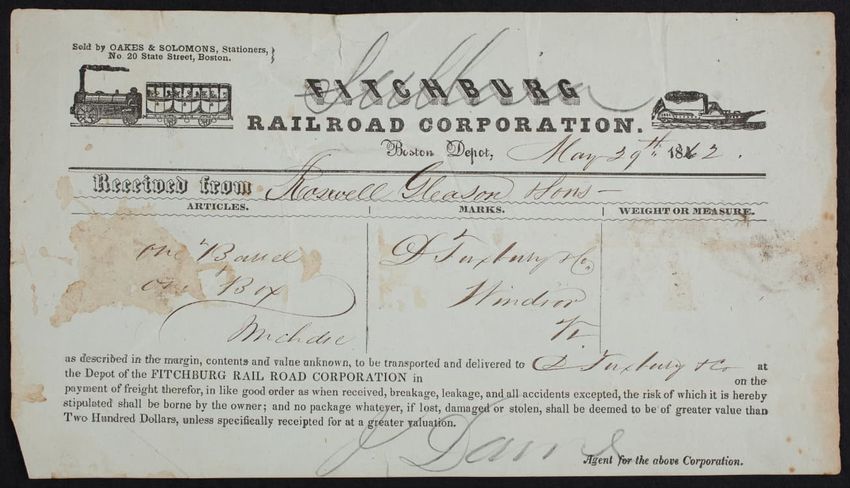 Sold by OAKES & SOLOMONS, Stationers,
No. 20 State Street, Boston.
FITCHBURG
RAILROAD CORPORATION.
Boston Depot, May 29th 1862.
Received from Roswell Gleason & Sons
ARTICLES. MARKS. WEIGHT OR MEASURE.
one Barrel D Tuxbury & Co.
one Box Windsor
Mchdse Vt.
as described in the margin, contents and value unknown, to be transported and delivered to D Tuxbury & Co at
the Depot of the FITCHBURG RAIL ROAD CORPORATION in on the
payment of freight therefor, in like good order as when received, breakage, leakage, and all accidents excepted, the risk of which it is hereby
stipulated shall be borne by the owner; and no package whatever, if lost, damaged or stolen, shall be deemed to be of greater value than
Two Hundred Dollars, unless specifically receipted for at a greater valuation.
Agent for the above Corporation.